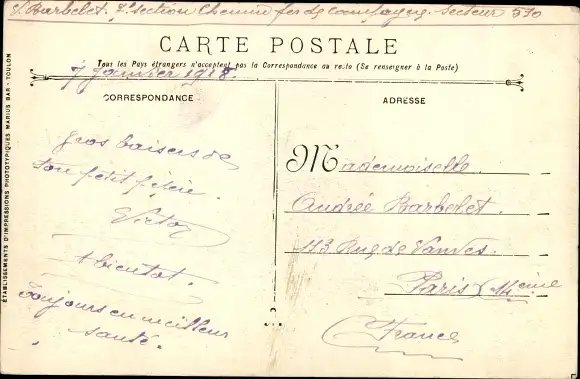 V. Barbelet. 7e section Chemin fer de campagne. Secteur 510
CARTE POSTALE
Tous les Pays étrangers n'acceptent pas la Correspondance au recto (Se renseigner à la Poste)
7 Janvier 1918.
CORRESPONDANCE
Gros baisers de
ton petit frère.
Victor
A bientot.
Toujours en meilleur
santé.
ADRESSE
Mademoiselle
Andrée Barbelet.
113 Rue de Vanves.
Paris (14eme
France
ÉTABLISSEMENTS D'IMPRESSIONS PHOTOTYPIQUES MARIUS BAR - TOULON